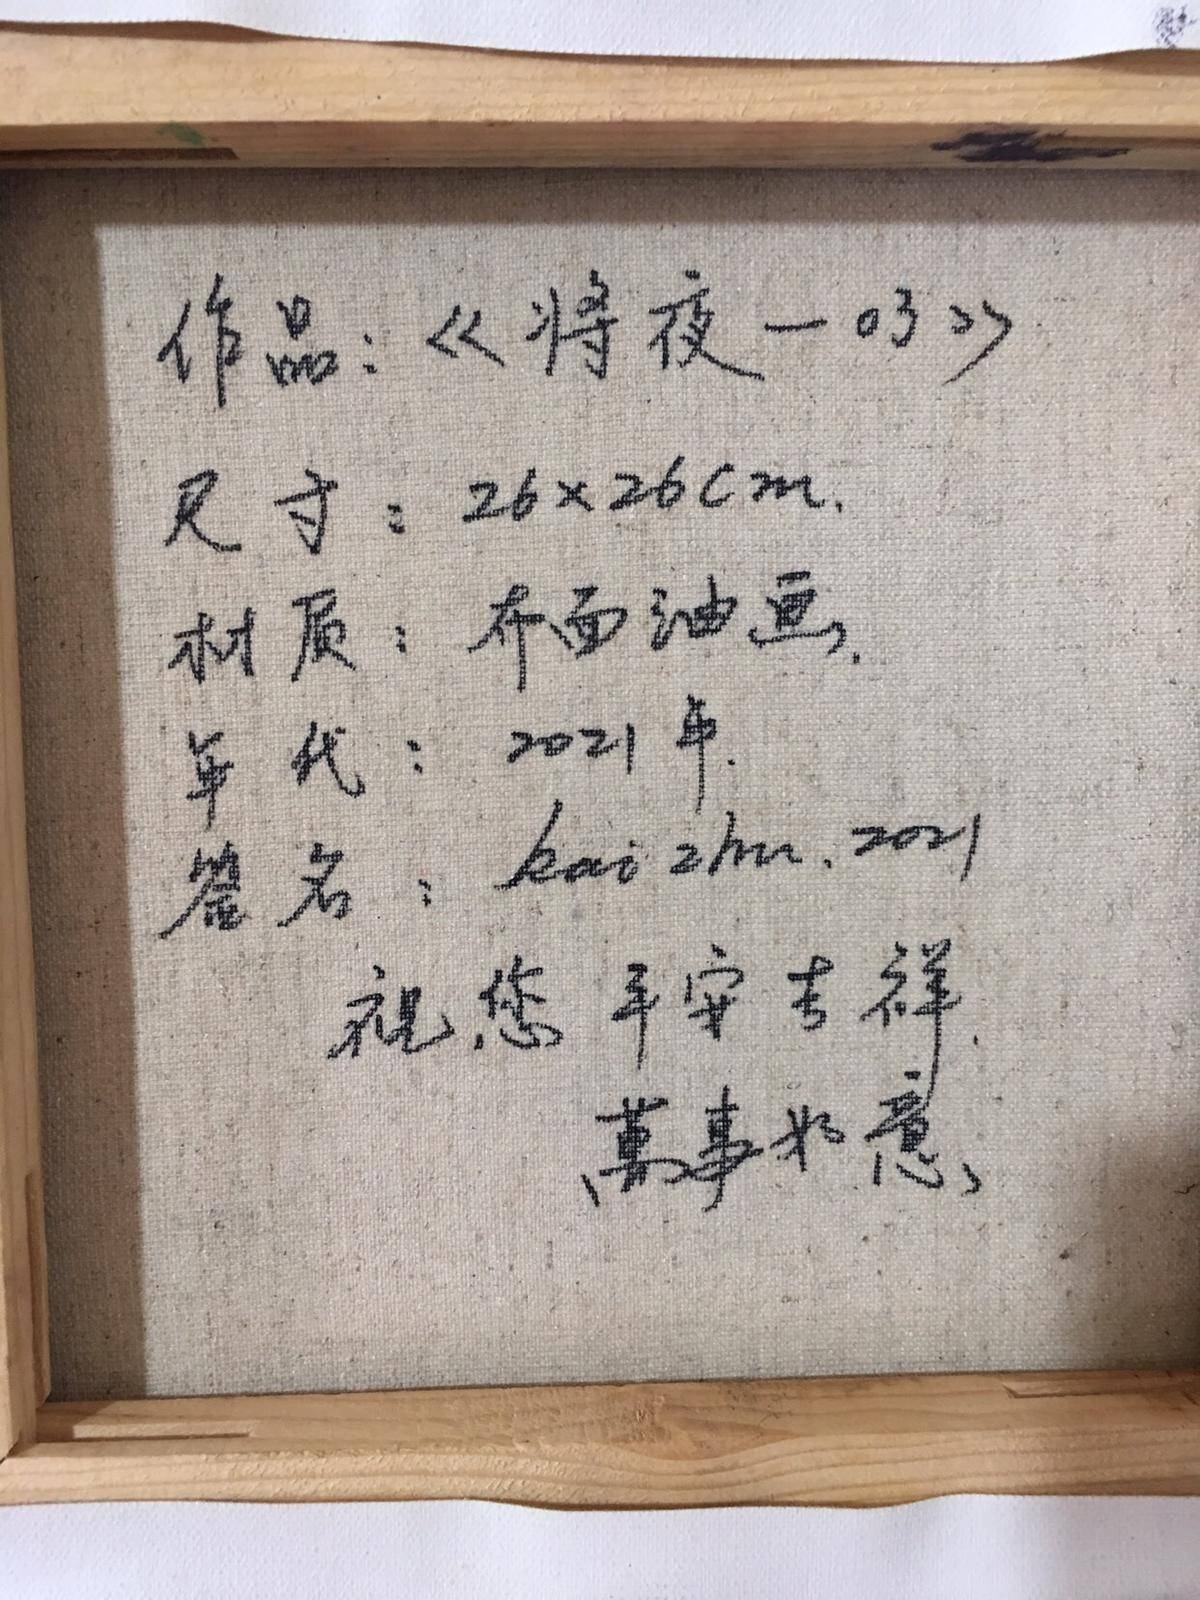 作品：《将夜－03》
尺寸：26×26cm.
材质：布面油画.
年代：2021年.
签名：kai zhu. 2021
祝您平安吉祥.
萬事如意